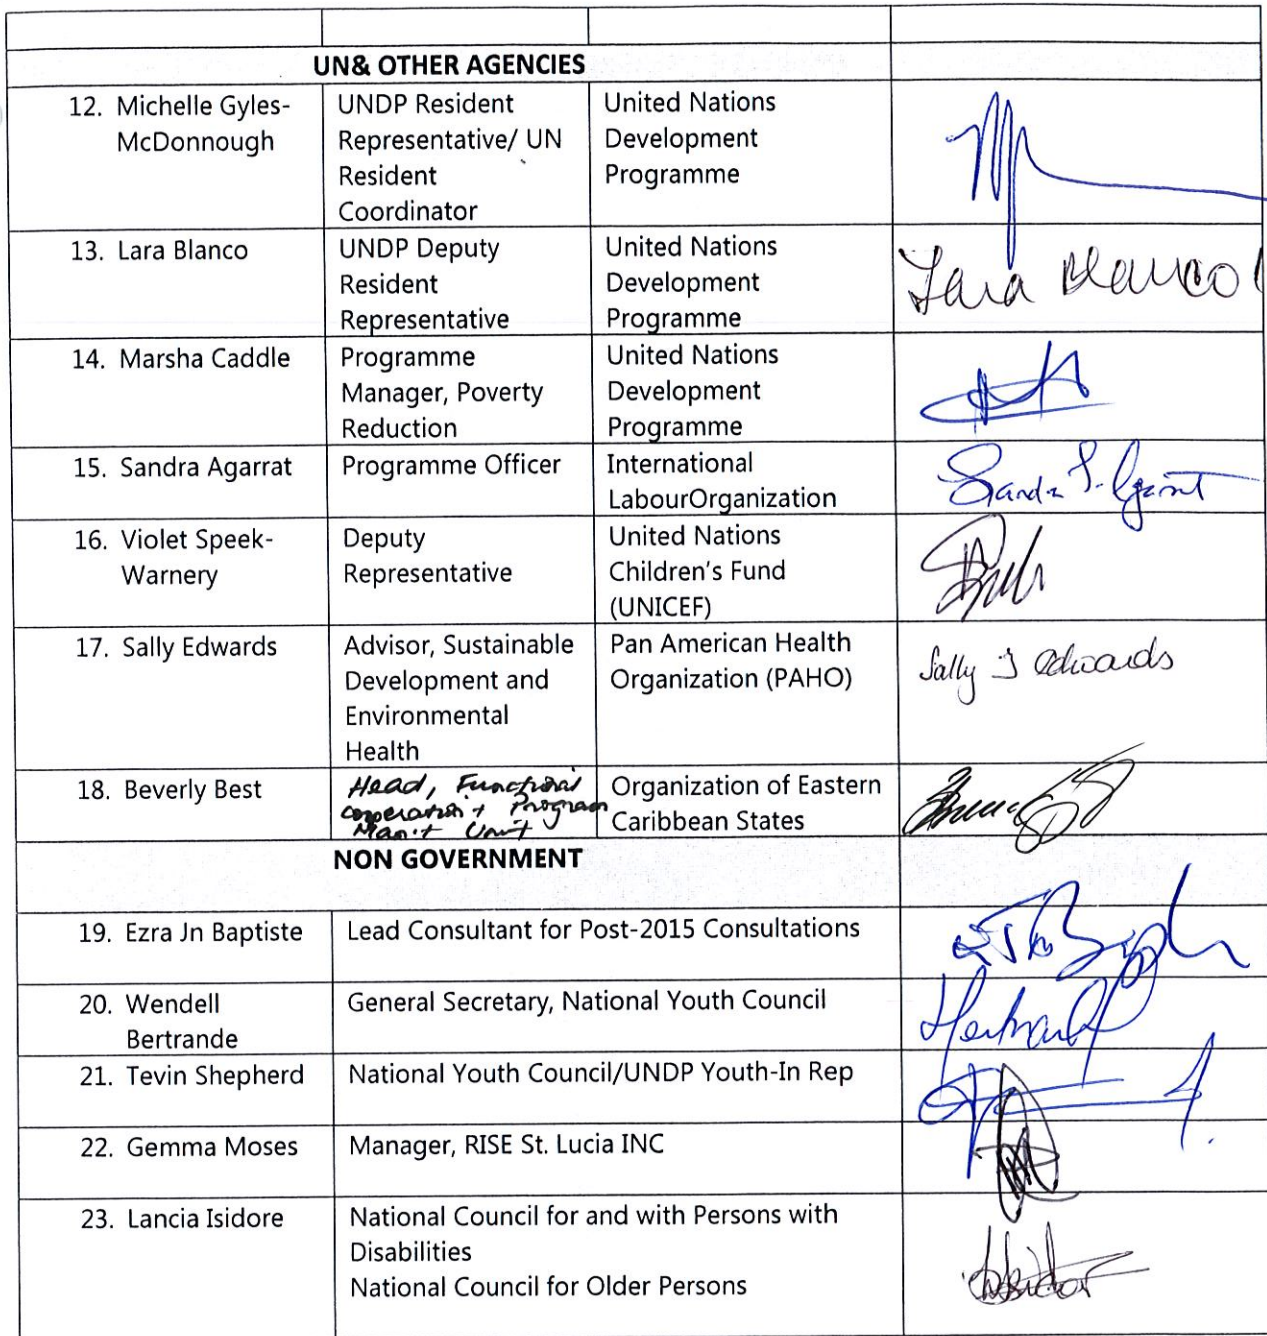 UN& OTHER AGENCIES
12. Michelle Gyles-
McDonnough
UNDP Resident
Representative/ UN
Resident
Coordinator
United Nations
Development
Programme
13. Lara Blanco
UNDP Deputy
Resident
Representative
United Nations
Development
Programme
Lara Blanco
14. Marsha Caddle
Programme
Manager, Poverty
Reduction
United Nations
Development
Programme
15. Sandra Agarrat
Programme Officer
International
LabourOrganization
16. Violet Speek-
Warnery
Deputy
Representative
United Nations
Children's Fund
(UNICEF)
17. Sally Edwards
Advisor, Sustainable
Development and
Environmental
Health
Pan American Health
Organization (PAHO)
Sally J Edwards
18. Beverly Best
Head, Functional
cooperation + Program
Man't Unit
Organization of Eastern
Caribbean States
NON GOVERNMENT
19. Ezra Jn Baptiste
Lead Consultant for Post-2015 Consultations
20. Wendell
Bertrande
General Secretary, National Youth Council
21. Tevin Shepherd
National Youth Council/UNDP Youth-In Rep
22. Gemma Moses
Manager, RISE St. Lucia INC
23. Lancia Isidore
National Council for and with Persons with
Disabilities
National Council for Older Persons